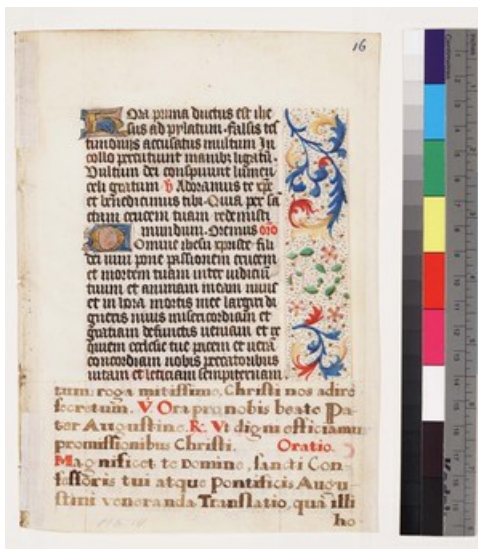 16
Hora prima ductus est ihe
sus ad pylatum. falsis tes
timoniis accusatus multum In
collo percutiunt manibus ligatū.
Vultum dei conspuunt lumen
celi gratum ỽ Adoramus te xp̄e
et benedicimus tibi. Quia per sā
ctam crucem tuam redemisti
mundum. Oremus orō
Domine ihesu xpriste fili
dei uiui pone passionem crucem
et mortem tuam inter iudiciū
tuum et animam meam nunc
et in hora mortis mee largiri di
gneris uiuis misericordiam et
gratiam defunctis ueniam et re
quiem ecclesie tue pacem et uerā
concordiam nobis peccatoribus
uitam et leticiam sempiternam.
tum, roga mitissime, Christi nos adire
secretum. V Ora pro nobis beate Pa-
ter Augustine. R. Vt digni efficiamur
promissionibus Christi. Oratio.
Magnificet te Domine, sancti Con-
fessoris tui atque Pontificis Augu-
stini veneranda Translatio, qua illi
ho